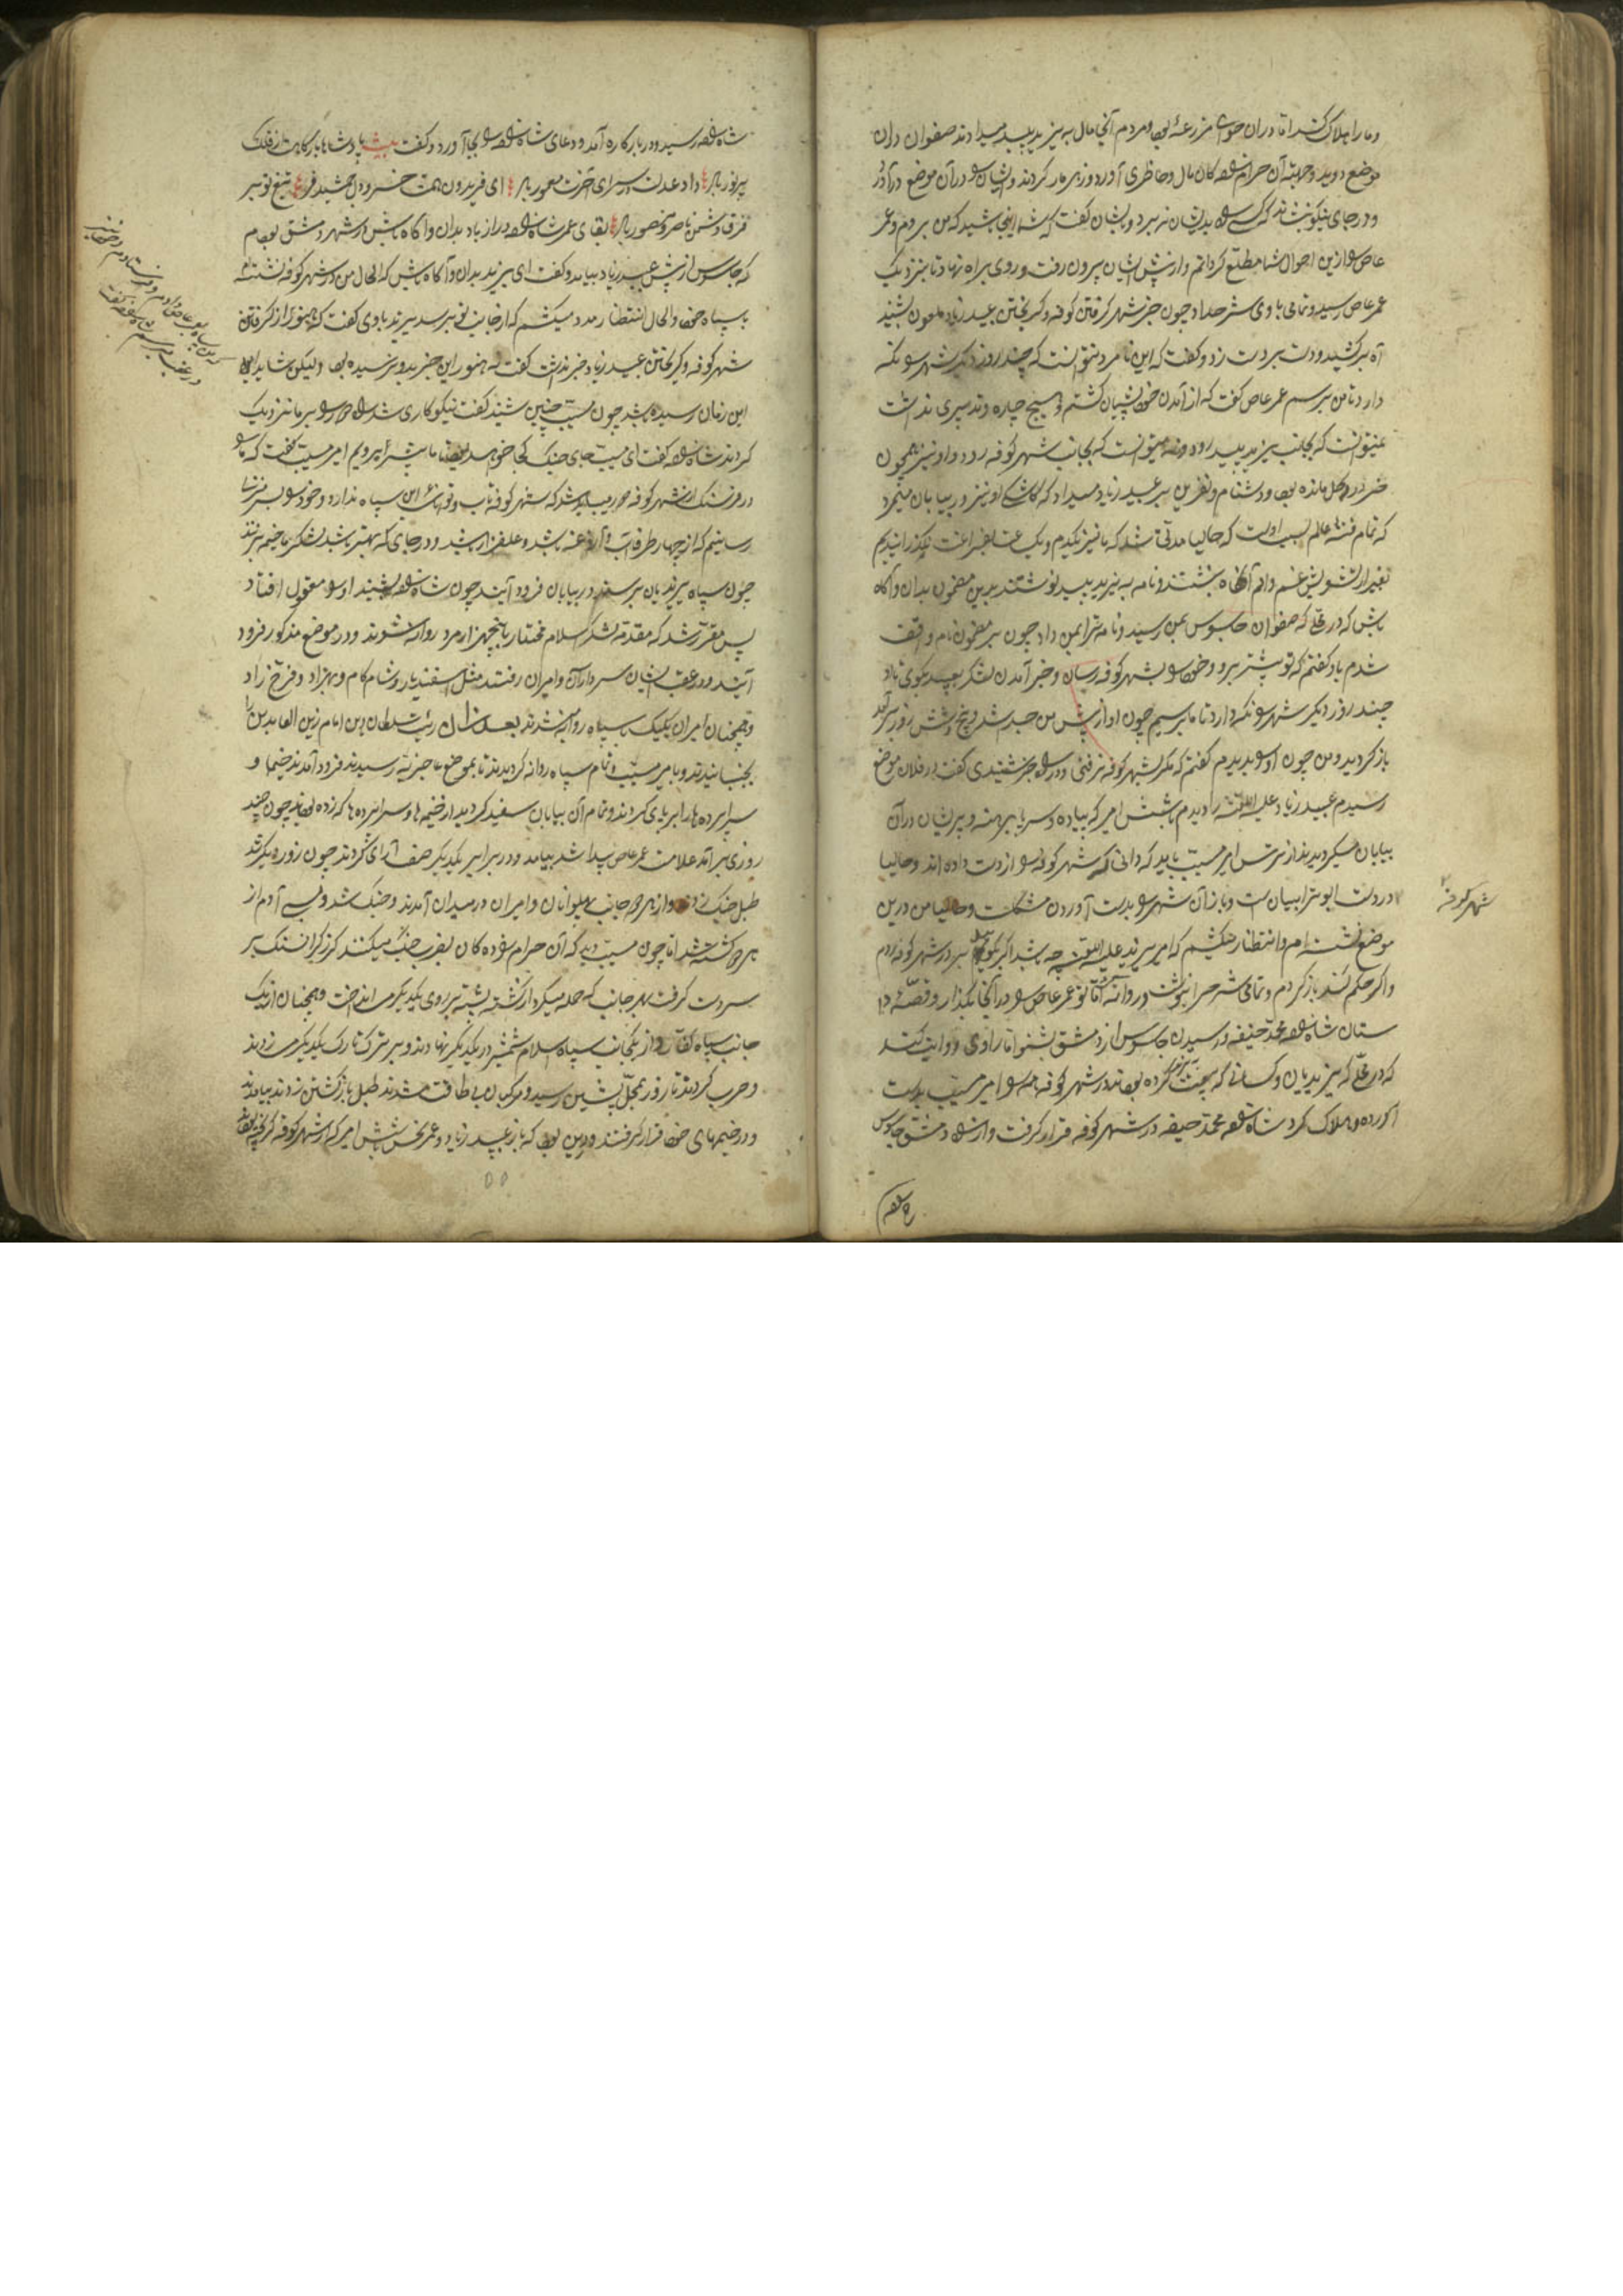 و ما را هلاک کنند اما در آن حوالی مزرعهٔ بود و مردم آنجا مال به یزید پلید میدادند صفوان در آن
موضع دوید و جهت آن حرامزاده کان مال و حاضری آورد و زهر مار کردند و ایشانرا در آن موضع در آورد
و در جای نیکو بنشاند که کسی راه بدیشان نبرد و بدیشان گفت که شما اینجا باشید که من بروم و عمر
عاص را ازین احوال شما مطلع گردانم و از پیش ایشان بیرون رفت و روی براه نهاد تا بنزدیک
عمر عاص رسید و تمامی با وی شرح داد و چون خبر شهر گرفتن کوفه و گریختن عبید زیاد ملعون بشنید
آه بر کشید و دست بر دست زد و گفت که این نامرد نتوانست که چند روز دیگر شهر را نگه
دارد تا من برسم عمر عاص گفت که از آمدن خود پشیمان گشتم و هیچ چاره و تدبیری نداشت
نمیتوانست که بجانب یزید پلید رود و نه میتوانست که بجانب شهر کوفه رود و او نیز همچون
خر در وحل مانده بود و دشنام و نفرین بر عبید زیاد میداد که کاشکی او نیز در بیابان میمرد
که تمام فتنهٔ عالم بسبب اوست که حالیا مدتی شد که ما نیز یکدم و یک ساعت بفراغت نگذرانیدیم
بغیر از تشویش غم و الم آنگاه بنشستند و نامه به یزید پلید نوشتند بدین مضمون بدان و آگاه
باش که در محلی که صفوان جاسوس بمن رسید و نامه ترا بمن داد چون بر مضمون نامه واقف
شدم باو گفتم که تو پیشتر برو و خود را بشهر کوفه رسان و خبر آمدن لشکر بعبید بگوی تا او
چند روز دیگر شهر را نگه دارد تا ما برسیم چون او از پیش من جدا شد و پنج و شش روز برآمد
باز گردید و من چون او را بدیدم گفتم که مگر بشهر کوفه نرفتی و در راه خبر شنیدی گفت در فلان موضع
رسیدم عبید زیاد علیه اللعنه را دیدم با شش امیر که پیاده و سر و پا برهنه و پریشان در آن
بیابان میگردیدند از ترس امیر مسیب باید که دانی که شهر کوفه را از دست داده اند و حالیا
در دست ابوترابیان است و باز آن شهر را بدست آوردن مشکلست و حالیا من درین
شهر کوفه
موضع نشسته ام و انتظار میکشم که امیر یزید علیه اللعنه چه باشد اگر گوید بر در شهر کوفه روم
و اگر حکم کند باز گردم و تمامی شرح را بنوشت و روانه کرد اما تو عمر عاص را در آنجا بگذار و قصهٔ دا
ستان شاه زاده محمد حنیفه و رسیدن جاسوس از دمشق بشنو اما راوی روایت کند
که در محلی که یزیدیان و کسانی که بیعت یزید کرده بودند در شهر کوفه همه را امیر مسیب بدست
آورده و هلاک کرد شاه زاده محمد حنیفه در شهر کوفه قرار گرفت و از راه دمشق جاسوس
شاه زاده
شاه زاده رسید و در بارگاه در آمد و دعای شاه زاده را بجای آورد و گفت بیت پادشاها بارگاهت از فلک
پر نور باد داد عدلت در سرای آخرت معمور باد ای فریدون همت خسرو دل جمشید فر تیغ تو بر
فرق دشمن ناصر و منصور باد بقای عمر شاه زاده دراز باد بدان و آگاه باش در شهر دمشق بودم
که جاسوس از پیش عبید زیاد بیامد و گفت ای یزید بدان و آگاه باش که الحال من در شهر کوفه نشسته ام
با سپاه خود و الحال انتظار مدد میکشم که از جانب تو برسد یزید با وی گفت که هنوز از گرفتن
شهر کوفه و گریختن عبید زیاد خبر نداشت گفت نه هنوز این خبر بدو نرسیده بود ولیکن شاید که
این زمان رسیده باشد چون مسیب چنین شنید گفت نیکو کاری شد
کردند شاه زاده گفت ای مسیب جای جنگ کجا خواهد بود تا ما پیشتر برویم امیر مسیب گفت که ما را
در فرسنگ از شهر کوفه دور میباید شد که شهر کوفه تاب و توانائی این سپاه ندارد و خود را بسرمنزلها
رسانیم که از چهار طرف آب و آزوغه باشد و علفزار باشد و در جای که بهتر باشد لشکر ما خیمه بزنند
چون سپاه یزیدیان برسند در بیابان فرود آیند چون شاه زاده بشنید او را معقول افتاد
پس مقرر شد که مقدمه لشکر اسلام مختار با پنجهزار مرد روانه شوند و در موضع مذکور فرود
آیند و در عقب ایشان سرداران و امیران رفتند مثل اسفندیار و شام کام و بهزاد و فرخ زاد
و همچنان امیران یکیک با سپاه روانه شدند بعد از آن رأیت سلطان دین امام زین العابدین را
بجنبانیدند و با امیر مسیب و تمام سپاه روانه گردیدند تا بموضع حاجزیه رسیدند فرود آمدند خیمها و
سراپرده ها را بر پای کردند و تمام آن بیابان سفید گردید از خیمه ها و سراپرده ها که زده بودند چون چند
روزی بر آمد علامت عمر عاص پیدا شد بیامد و در برابر یکدیگر صف آرای کردند چون روز دیگر شد
طبل جنگ زدند و از هر دو جانب پهلوانان و امیران در میدان آمدند و جنگ شد و بسی آدم از
هر دو کشته شد اما چون مسیب دید که آن حرامزاده کان بضرب جنگ میکنند گرز گران سنگ بر
سر دست گرفت بهر جانب که حمله میکرد از کشته پشته بر روی یکدیگر می انداخت و همچنان از یک
جانب سپاه کفار و از یکجانب سپاه اسلام شمشیر در یکدیگر نهادند و بر ترک تارک یکدیگر میزدند
و حرب کردند تا روز بمحل پیشین رسید و مرکبان بی طاقت شدند طبل بازگشتن زدند بیامدند
و در خیمهای خود قرار گرفتند و درین بود که باز عبید زیاد و عمر نحس با شش امیر که از شهر کوفه گریخته بودند